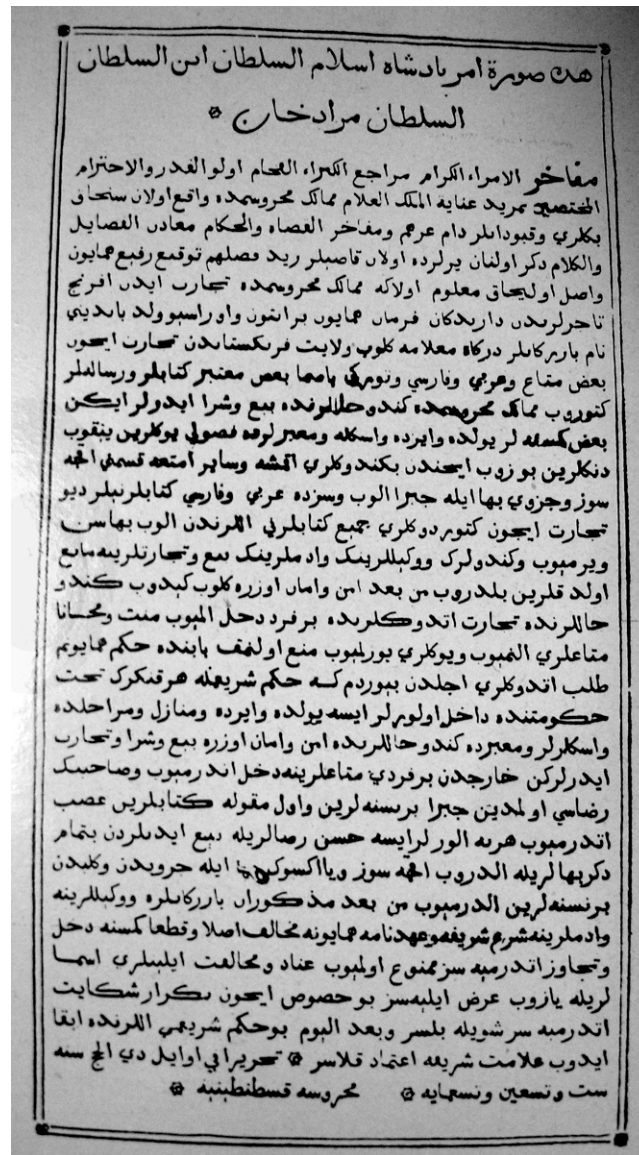 هذه صورة امر پادشاه اسلام السلطان ابن السلطان
السلطان مراد خان
مفاخر الامراء الكرام مراجع الكبراء الفخام اولو القدر والاحترام
المختصين بمزيد عناية الملك العلام ممالك محروسمده واقع اولان سنجاق
بكلري وقبودانلر دام عزهم ومفاخر القضاه والحكام معادن الفضايل
والكلام ذكر اولنان يرلرده اولان قاضيلر زيد فضلهم توقيع رفيع همايون
واصل اوليجاق معلوم اولا كه ممالك محروسمده تجارت ايدن افرنج
تاجرلريندن دارندكان فرمان همايون برانتون واوراسيو ولد بانديني
نام بازركانلر دركاه معلامه كلوب ولايت فرنكستاندن تجارت ايچون
بعض متاع وعربي وفارسي وتوركي باصما بعض معتبر كتابلر ورسالهلر
كتوروب ممالك محروسمده كندو حاللرنده بيع وشرا ايدرلر ايكن
بعض كمسنه لر يولده وايزده واسكله ومعبرلرده فضولي يوكلرين ييقوب
دنكلرين بوزوب ايچندن بكندوكلري اقمشه وساير امتعه قسمني اقچه
سوز وجزوي بها ايله جبرا الوب وسزده عربي وفارسي كتابلر نيلر ديو
تجارت ايچون كتوردوكلري جميع كتابلرني اللرندن الوب بهاسن
ويرميوب وكندولرك ووكيللرينك وادملرينك بيع وتجارتلرينه مانع
اولدقلرين بلدروب من بعد امن وامان اوزره كلوب كيدوب كندو
حاللرنده تجارت اتدوكلرينده بر فرد دخل المیوب منت ومجانا
متاعلري النميوب ويوكلري بوزلميوب منع اولنمق بابنده حكم همايونم
طلب اتدوكلري اجلدن بيوردم كه حكم شريفمله هر قنكزك تحت
حكومتنده داخل اولورلر ايسه يولده وايزده ومنازل ومراحلده
واسكلرلر ومعبرده كندو حاللرنده امن وامان اوزره بيع وشرا وتجارت
ايدرلركن خارجدن بر فردي متاعلرينه دخل اندرميوب وصاحبنك
رضاسي اولمدين جبرا بر نسنه لرين واول مقوله كتابلرين غصب
اتدرميوب هر نه الورلر ايسه حسن رضالريله بيع ايدنلردن بتمام
دكر بهالريله الدروب اقچه سوز ويا اكسوك بها ايله جزويدن وكليدن
بر نسنه لرين الدرميوب من بعد مذكوران بازركانلره ووكيللرينه
وادملرينه شرع شريفه وعهدنامه همايونه مخالف اصلا وقطعا كمسنه دخل
وتجاوز اتدرميه سز ممنوع اولميوب عناد ومخالفت ايلينلري اسما
لريله يازوب عرض ايليه سز بو خصوص ايچون تكرار شكايت
اتدرميه سز شويله بلسز وبعد اليوم بو حكم شريفمي اللرنده ابقا
ايدوب علامت شريفه اعتماد قلاسز تحريرا في اوايل ذي الحج سنه
ست وتسعين وتسعمايه محروسه قسطنطينيه